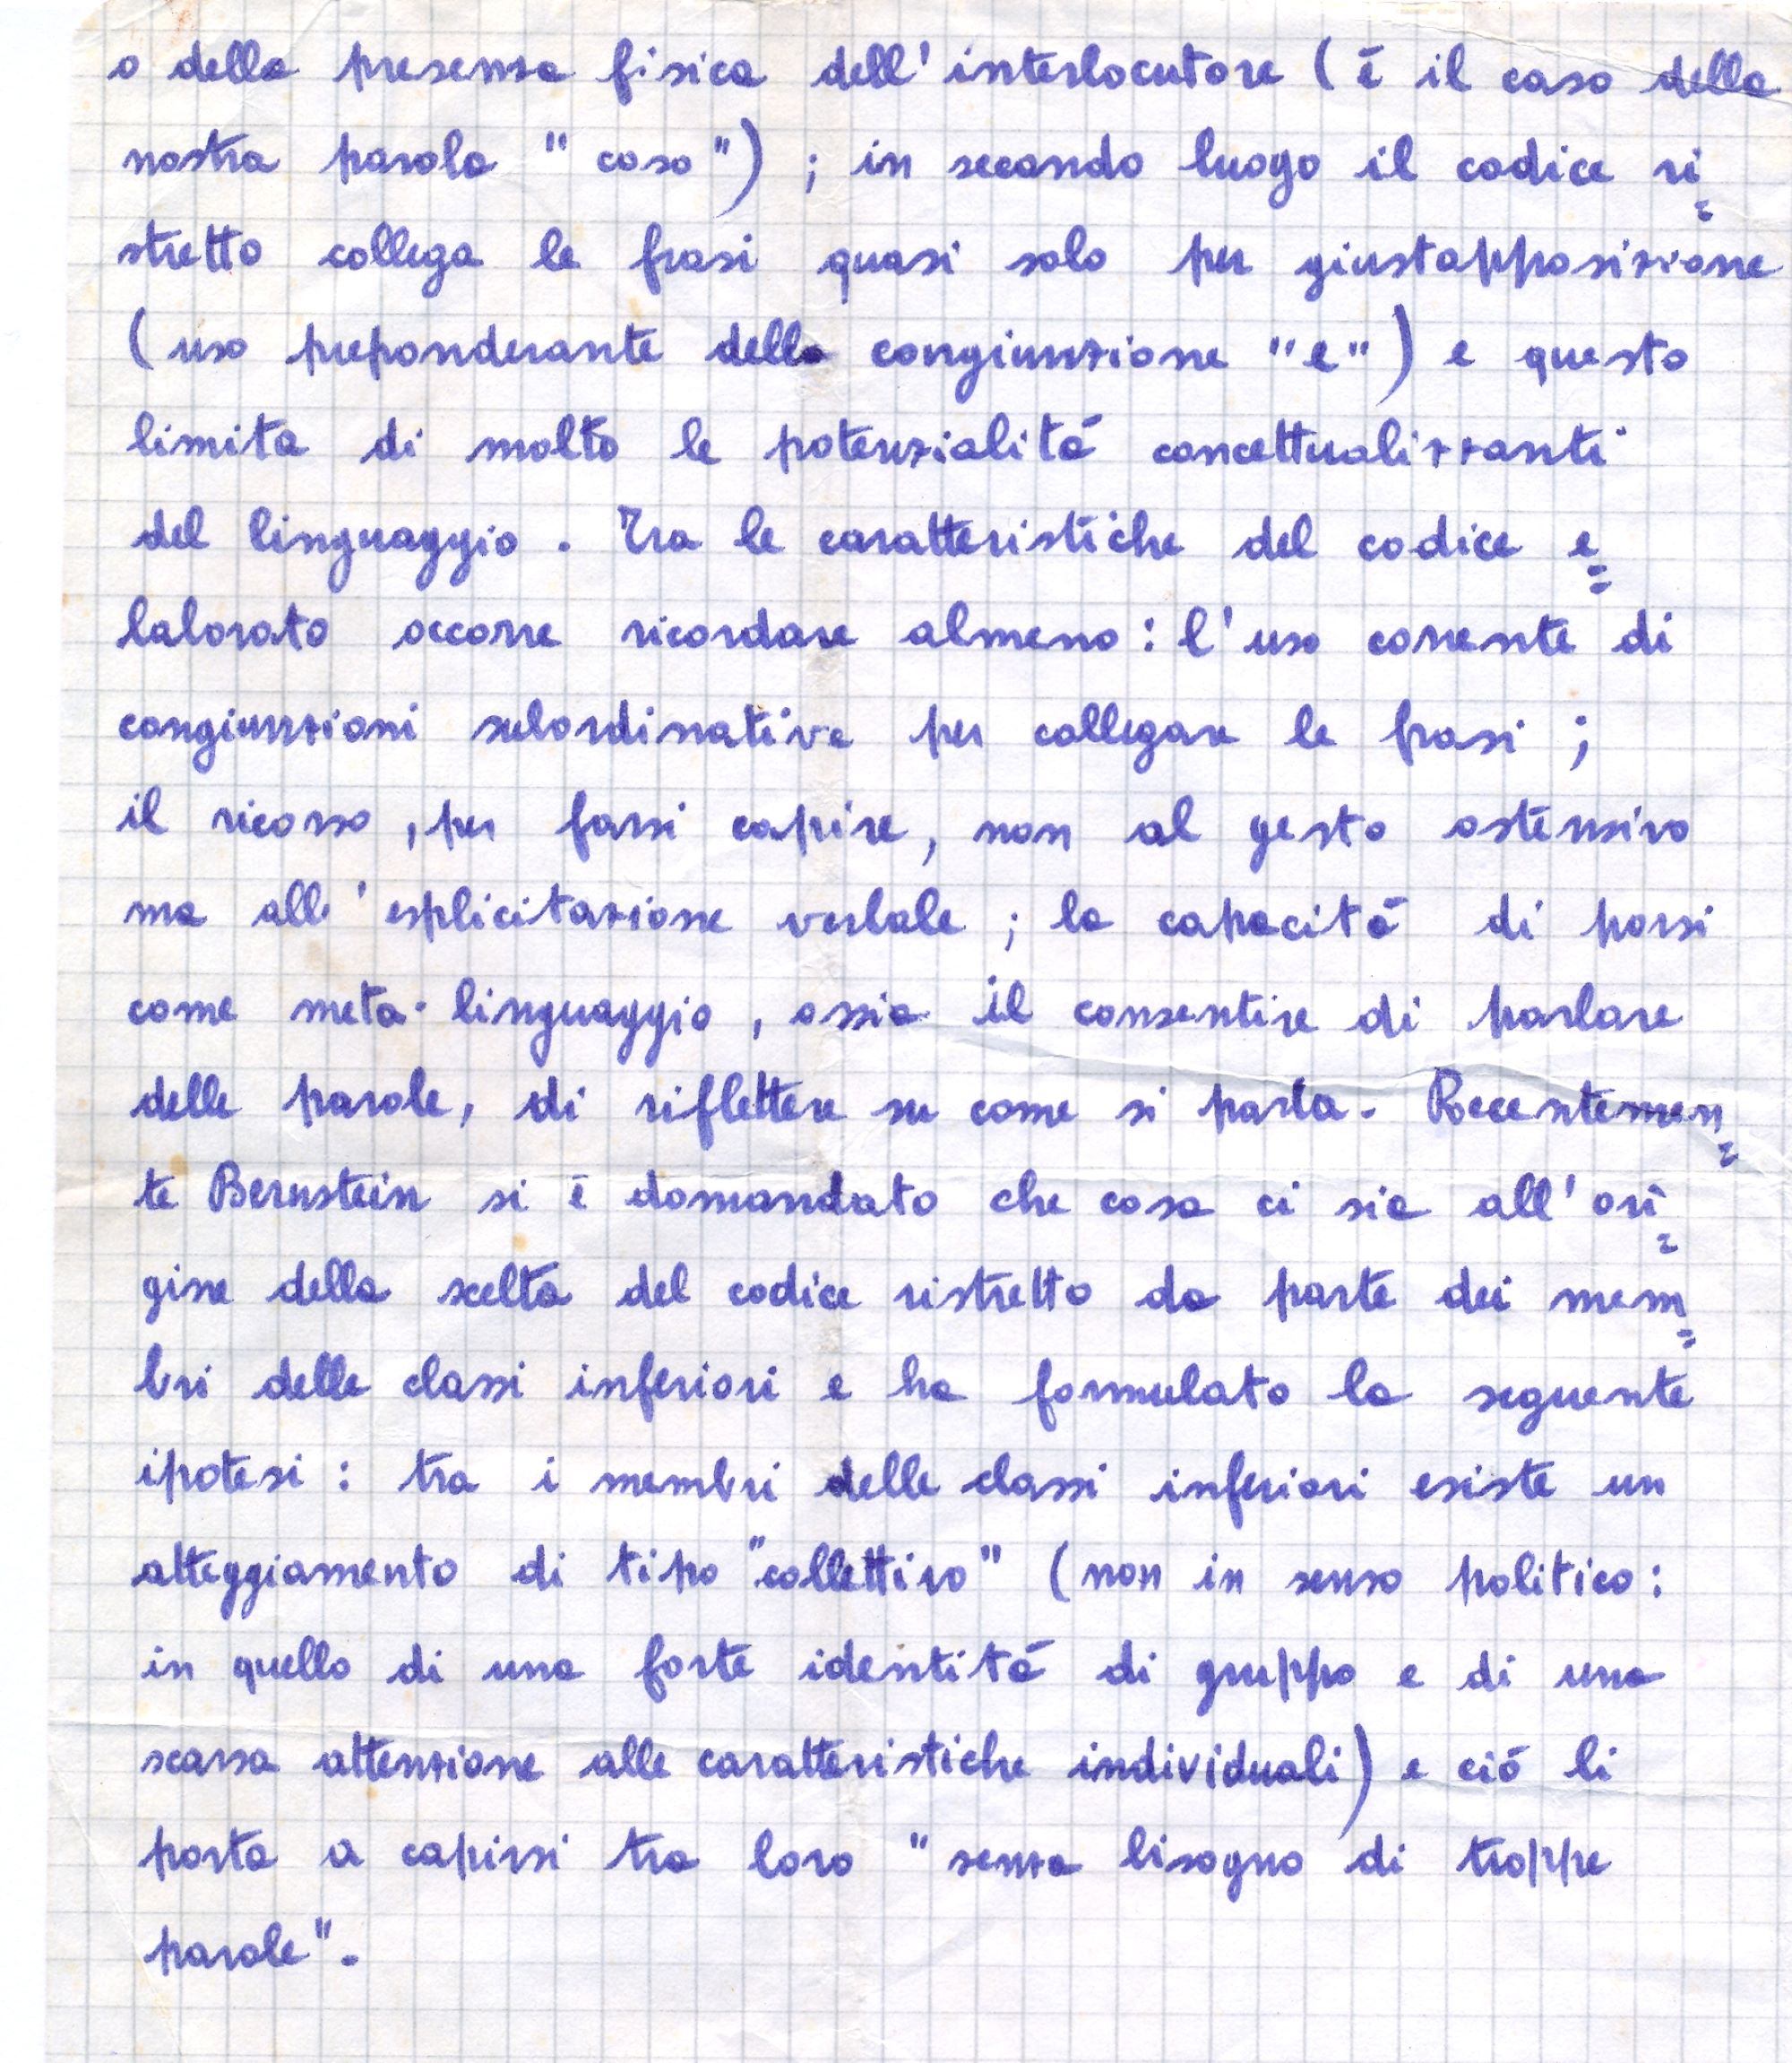 o della presenza fisica dell'interlocutore (é il caso della
nostra parola "coso") ; in secondo luogo il codice ri=
stretto collega le frasi quasi solo per giustapposizione
(uso preponderante della congiunzione "e") e questo
limita di molto le potenzialitá concettualizzanti
del linguaggio. Tra le caratteristiche del codice e=
laborato occorre ricordare almeno: l'uso corrente di
congiunzioni subordinative per collegare le frasi ;
il ricorso, per farsi capire, non al gesto ostensivo
ma all'esplicitazione verbale ; la capacitá di porsi
come meta-linguaggio, ossia il consentire di parlare
delle parole, di riflettere su come si parla. Recentemen=
te Bernstein si é domandato che cosa ci sia all'ori=
gine della scelta del codice ristretto da parte dei mem=
bri delle classi inferiori e ha formulato la seguente
ipotesi : tra i membri delle classi inferiori esiste un
atteggiamento di tipo "collettivo" (non in senso politico:
in quello di una forte identitá di gruppo e di una
scarsa attenzione alle caratteristiche individuali) e ció li
porta a capirsi tra loro "senza bisogno di troppe
parole".